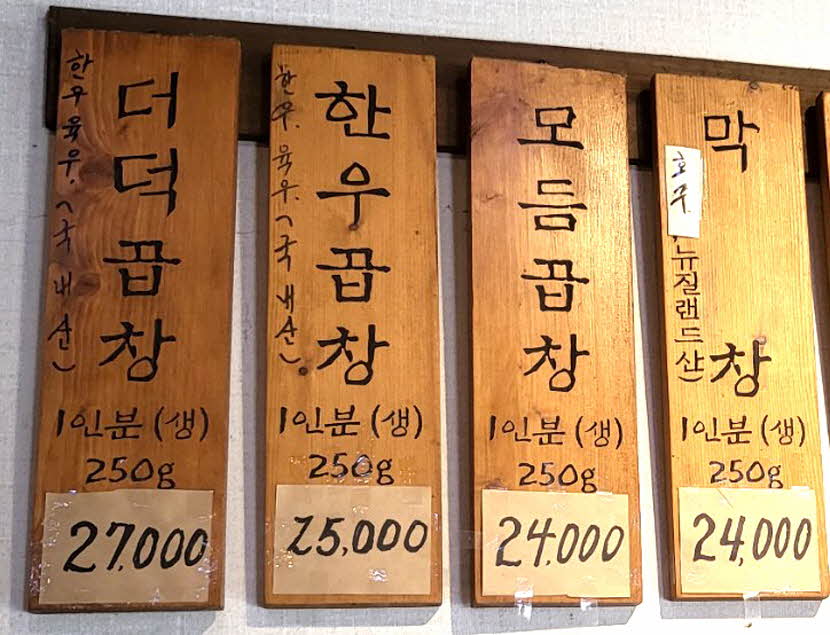 한우육우. (국내산)
더덕곱창
1인분 (생)
250g
27,000
한우. 육우. (국내산).
한우곱창
1인분 (생)
250g
25,000
모듬곱창
1인분 (생)
250g
24,000
호주, 뉴질랜드산)
막창
1인분 (생)
250g
24,000